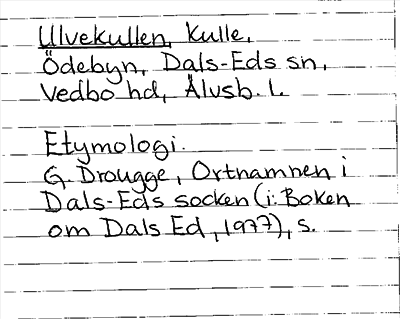 Ulvekullen, Kulle,
Ödebyn, Dals-Eds sn,
Vedbo hd, Älvsb. l.
Etymologi.
G. Drougge, Ortnamnen i
Dals-Eds socken (i: Boken
om Dals Ed, 1977), s.